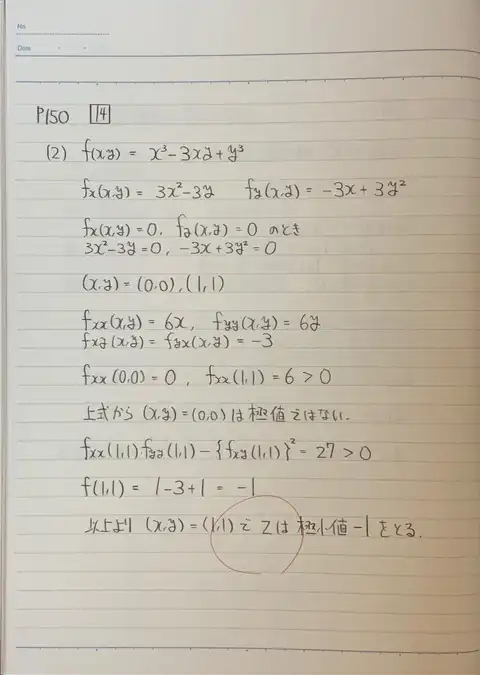 No.
Date
P150 14
(2) f(x,y) = x³-3xy+y³
fx(x,y) = 3x²-3y fy(x,y) = -3x+3y²
fx(x,y)=0, fy(x,y)=0 のとき
3x²-3y=0, -3x+3y²=0
(x,y)=(0,0),(1,1)
fxx(x,y)=6x, fyy(x,y)=6y
fxy(x,y)=fyx(x,y)=-3
fxx(0,0)=0, fxx(1,1)=6>0
上式から (x,y)=(0,0)は極値ではない.
fxx(1,1)fyy(1,1)-{fxy(1,1)}²=27>0
f(1,1)=1-3+1=-1
以上より (x,y)=(1,1)で zは 極小値-1をとる.